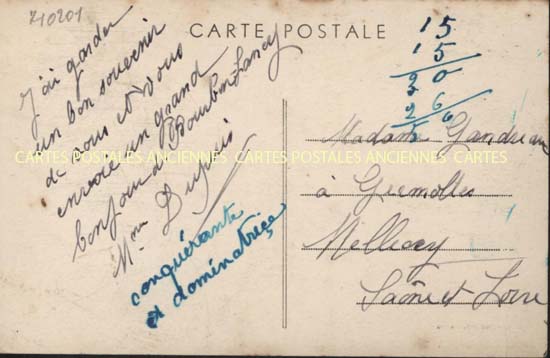 710201
CARTE POSTALE
15
15
30
26
J'ai garder
un bon souvenir
de vous et vous
envoie un grand
bonjour de Bourbon Lancy
Mme Dupuis
conquérante
et dominatrice
Madame
à Germolles
Mellecey
Saône et Loire
CARTES POSTALES ANCIENNES CARTES POSTALES ANCIENNES CARTES